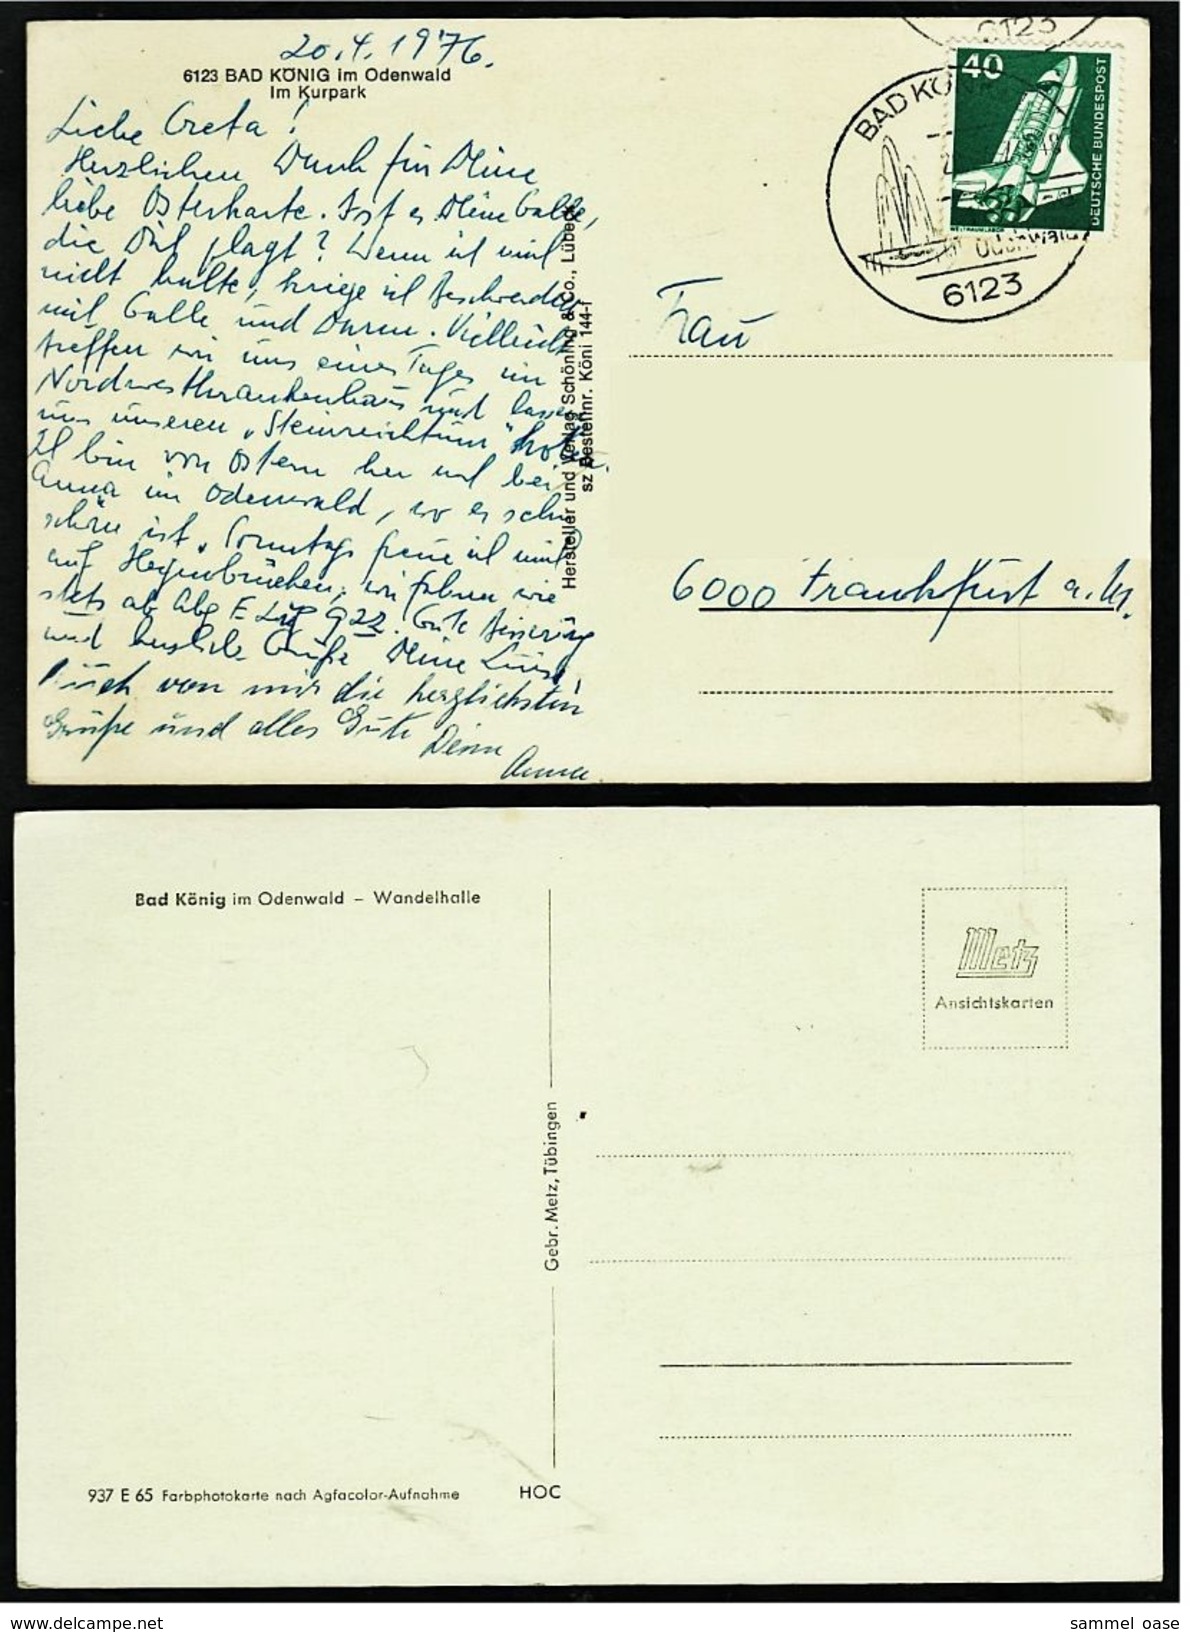 20.4.1976.
6123 BAD KÖNIG im Odenwald
Im Kurpark
Liebe Greta!
Herzlichen Dank für Deine
liebe Osterkarte. Ist es Deine Galle,
die Dich plagt? Wenn ich mich
nicht halte, kriege ich Beschwerden
mit Galle und Darm. Vielleicht
treffen wir uns eines Tages im
Nordwestkrankenhaus und lassen
uns unseren "Steinreichtum" holen.
Ich bin von Ostern her noch bei
Anna im Odenwald, wo es schön
schön ist. Sonntags freue ich mich
auf wir fahren wie
stets ab 922. Gute Besserung
und herzliche Grüße Deine Luise
Auch von mir die herzlichsten
Grüße und alles Gute Deine
Anna
Hersteller und Verlag Schöning & Co., Lübeck
sz Bestellnr. Köni 144-f
6123
BAD KÖNIG
Odenwald
6123
40
DEUTSCHE BUNDESPOST
WELTRAUMLABOR
Frau
6000 Frankfurt a.M.
Bad König im Odenwald – Wandelhalle
Metz
Ansichtskarten
Gebr. Metz, Tübingen
937 E 65 Farbphotokarte nach Agfacolor-Aufnahme
HOC
www.delcampe.net
sammel_oase